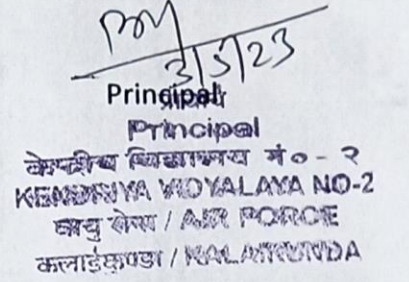 3/5/23
Principal
Principal
केन्द्रीय विद्यालय नं० - २
KENDRIYA VIDYALAYA NO-2
वायु सेना / AIR FORCE
कलाईकुण्डा / KALAIKUNDA